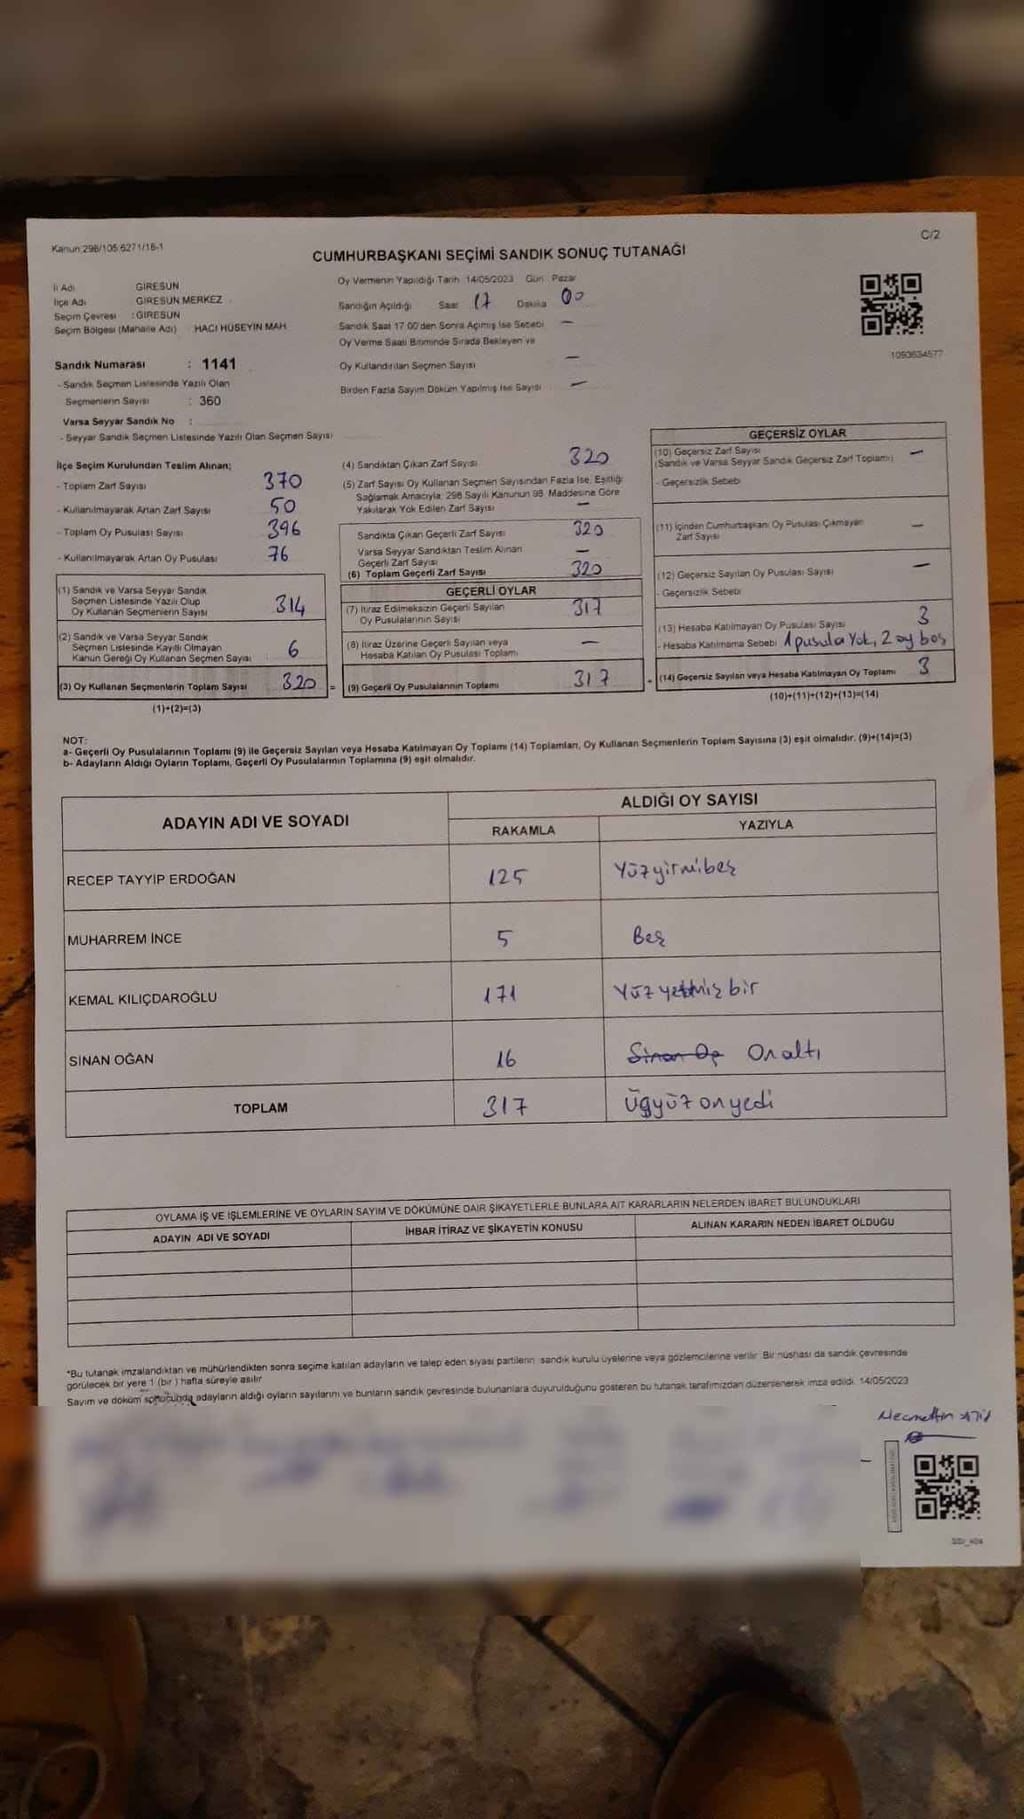 Kanun:298/105 6271/16-1
C/2
CUMHURBAŞKANI SEÇİMİ SANDIK SONUÇ TUTANAĞI
İl Adı GİRESUN
İlçe Adı GİRESUN MERKEZ
Seçim Çevresi : GİRESUN
Seçim Bölgesi (Mahalle Adı) HACI HÜSEYİN MAH
Sandık Numarası : 1141
- Sandık Seçmen Listesinde Yazılı Olan
Seçmenlerin Sayısı : 360
Varsa Seyyar Sandık No :
- Seyyar Sandık Seçmen Listesinde Yazılı Olan Seçmen Sayısı
Oy Vermenin Yapıldığı Tarih 14/05/2023 Gün : Pazar
Sandığın Açıldığı Saat 17 Dakika 00
Sandık Saat 17.00'den Sonra Açımış İse Sebebi —
Oy Verme Saati Bitiminde Sırada Bekleyen ve
Oy Kullandırılan Seçmen Sayısı —
Birden Fazla Sayım Döküm Yapılmış İse Sayısı —
1093634577
İlçe Seçim Kurulundan Teslim Alınan;
- Toplam Zarf Sayısı 370
- Kullanılmayarak Artan Zarf Sayısı 50
- Toplam Oy Pusulası Sayısı 396
- Kullanılmayarak Artan Oy Pusulası 76
(1) Sandık ve Varsa Seyyar Sandık
Seçmen Listesinde Yazılı Olup
Oy Kullanan Seçmenlerin Sayısı 314
(2) Sandık ve Varsa Seyyar Sandık
Seçmen Listesinde Kayıtlı Olmayan
Kanun Gereği Oy Kullanan Seçmen Sayısı 6
(3) Oy Kullanan Seçmenlerin Toplam Sayısı 320 =
(1)+(2)=(3)
(4) Sandıktan Çıkan Zarf Sayısı 320
(5) Zarf Sayısı Oy Kullanan Seçmen Sayısından Fazla İse, Eşitliği
Sağlamak Amacıyla, 298 Sayılı Kanunun 98. Maddesine Göre
Yakılarak Yok Edilen Zarf Sayısı —
Sandıkta Çıkan Geçerli Zarf Sayısı 320
Varsa Seyyar Sandıktan Teslim Alınan
Geçerli Zarf Sayısı —
(6) Toplam Geçerli Zarf Sayısı 320
GEÇERLİ OYLAR
(7) İtiraz Edilmeksizin Geçerli Sayılan
Oy Pusulalarının Sayısı 317
(8) İtiraz Üzerine Geçerli Sayılan veya
Hesaba Katılan Oy Pusulası Toplamı —
(9) Geçerli Oy Pusulalarının Toplamı 317
GEÇERSİZ OYLAR
(10) Geçersiz Zarf Sayısı —
(Sandık ve Varsa Seyyar Sandık Geçersiz Zarf Toplamı)
- Geçersizlik Sebebi
(11) İçinden Cumhurbaşkanı Oy Pusulası Çıkmayan
Zarf Sayısı —
(12) Geçersiz Sayılan Oy Pusulası Sayısı —
- Geçersizlik Sebebi
(13) Hesaba Katılmayan Oy Pusulası Sayısı 3
- Hesaba Katılmama Sebebi 1 pusula yok, 2 oy boş
(14) Geçersiz Sayılan veya Hesaba Katılmayan Oy Toplamı 3
(10)+(11)+(12)+(13)=(14)
NOT:
a- Geçerli Oy Pusulalarının Toplamı (9) ile Geçersiz Sayılan veya Hesaba Katılmayan Oy Toplamı (14) Toplamları, Oy Kullanan Seçmenlerin Toplam Sayısına (3) eşit olmalıdır. (9)+(14)=(3)
b- Adayların Aldığı Oyların Toplamı, Geçerli Oy Pusulalarının Toplamına (9) eşit olmalıdır.
ADAYIN ADI VE SOYADI
ALDIĞI OY SAYISI
RAKAMLA YAZIYLA
RECEP TAYYİP ERDOĞAN 125 Yüzyirmibeş
MUHARREM İNCE 5 Beş
KEMAL KILIÇDAROĞLU 171 Yüzyetmiş bir
SİNAN OĞAN 16 Onaltı
TOPLAM 317 Üçyüzonyedi
OYLAMA İŞ VE İŞLEMLERİNE VE OYLARIN SAYIM VE DÖKÜMÜNE DAİR ŞİKAYETLERLE BUNLARA AİT KARARLARIN NELERDEN İBARET BULUNDUKLARI
ADAYIN ADI VE SOYADI İHBAR İTİRAZ VE ŞİKAYETİN KONUSU ALINAN KARARIN NEDEN İBARET OLDUĞU
*Bu tutanak imzalandıktan ve mühürlendikten sonra seçime katılan adayların ve talep eden siyasi partilerin sandık kurulu üyelerine veya gözlemcilerine verilir. Bir nüshası da sandık çevresinde
görülecek bir yere 1 (bir ) hafta süreyle asılır
Sayım ve döküm sonucunda adayların aldığı oyların sayılarını ve bunların sandık çevresinde bulunanlara duyurulduğunu gösteren bu tutanak tarafımızdan düzenlenerek imza edildi. 14/05/2023
Necmettin